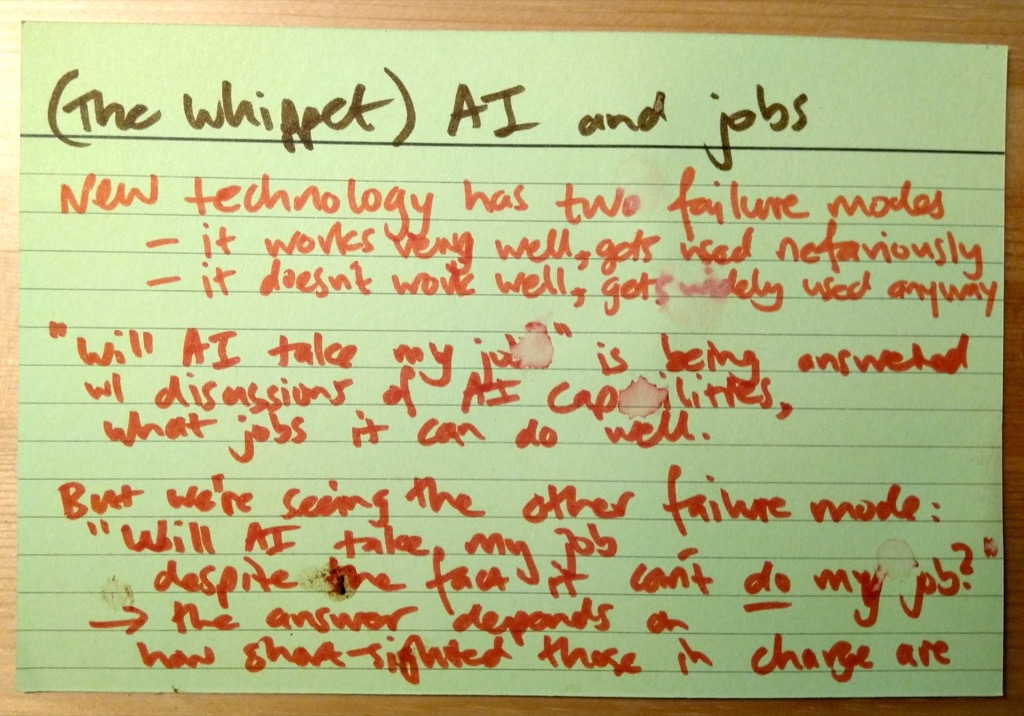 (The Whippet) AI and jobs
New technology has two failure modes
- it works very well, gets used nefariously
- it doesn't work well, gets widely used anyway
"Will AI take my job" is being answered
w/ discussions of AI capabilities,
what jobs it can do well.
But we're seeing the other failure mode:
"Will AI take my job
despite the fact it can't do my job?"
→ the answer depends on
how short-sighted those in charge are